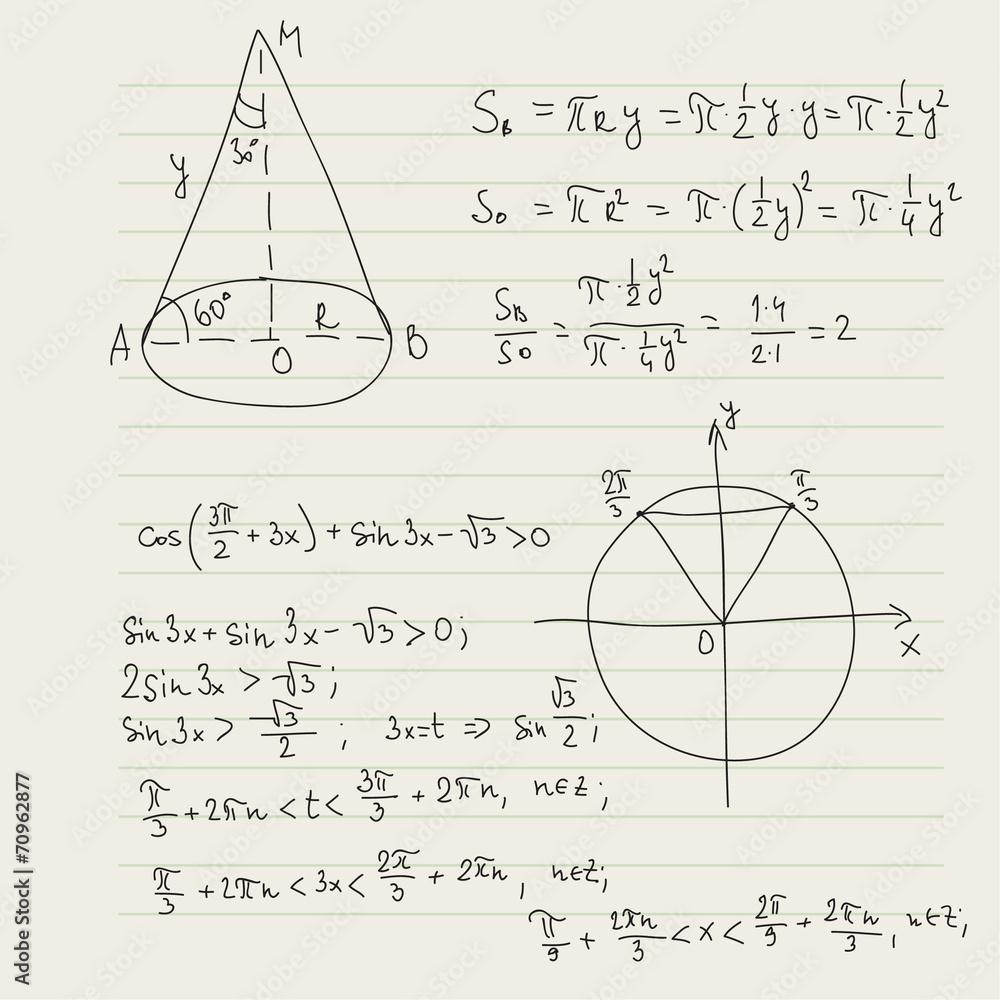 M
30°
y
60°
R
A
O
B
S_B = πRy = π·1/2 y·y = π·1/2 y²
S_O = πR² = π·(1/2 y)² = π·1/4 y²
S_B/S_O = (π·1/2 y²)/(π·1/4 y²) = (1·4)/(2·1) = 2
y
2π/3
π/3
O
x
cos(3π/2 + 3x) + sin 3x - √3 > 0
sin 3x + sin 3x - √3 > 0;
2 sin 3x > √3;
sin 3x > √3/2 ; 3x = t ⇒ sin √3/2;
π/3 + 2πn < t < 3π/3 + 2πn, n∈z;
π/3 + 2πn < 3x < 2π/3 + 2πn, n∈Z;
π/9 + 2πn/3 < x < 2π/9 + 2πn/3, n∈Z;
Adobe Stock | #70962877
Adobe Stock